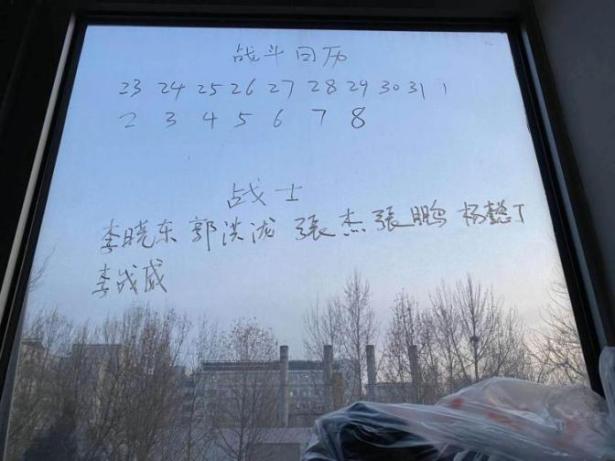 战斗日历
23 24 25 26 27 28 29 30 31 1
2 3 4 5 6 7 8
战士
李晓东 郭洪泷 張杰 張鹏 杨懿丁
李战威